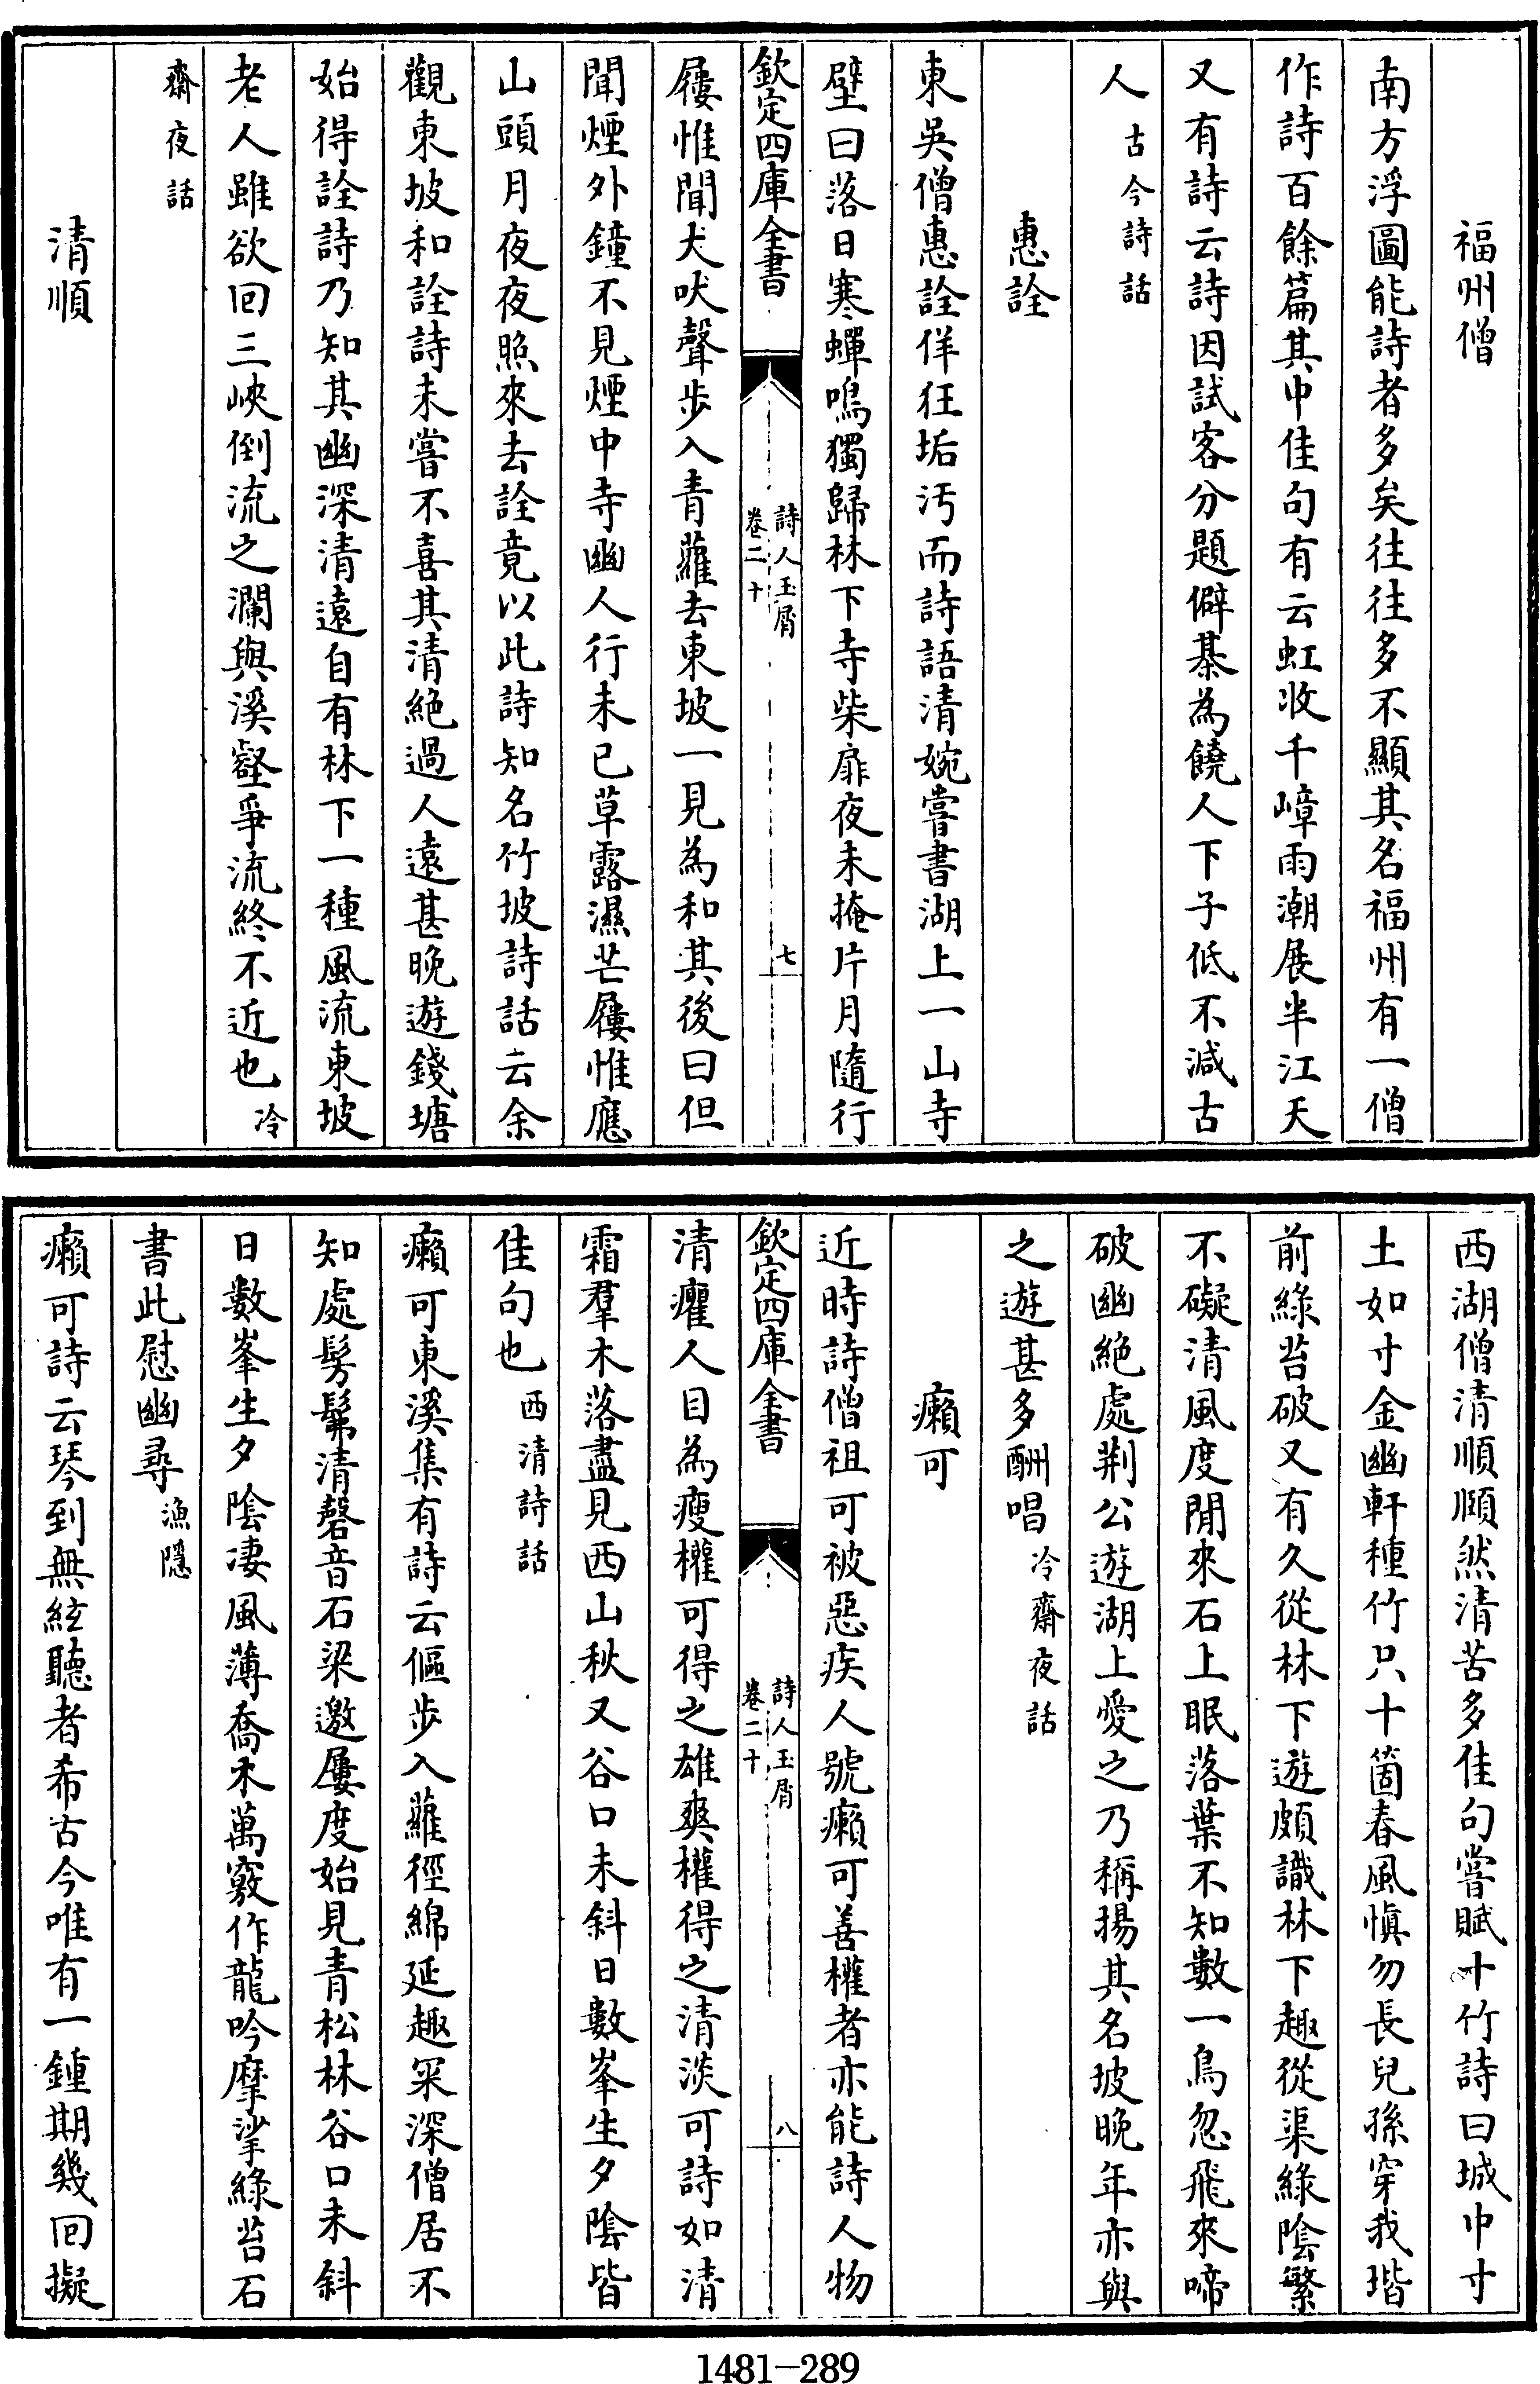 福州僧
南方浮圖能詩者多矣往往多不顯其名福州有一僧
作詩百餘篇其中佳句有云虹收千嶂雨潮展半江天
又有詩云詩因試客分題僻棊為饒人下子低不減古
人古今詩話
惠詮
東吳僧惠詮佯狂垢汚而詩語清婉嘗書湖上一山寺
壁曰落日寒蟬鳴獨歸林下寺柴扉夜未掩片月隨行
欽定四庫全書
詩人玉屑
卷二十
七
屨惟聞犬吠聲步入青蘿去東坡一見為和其後曰但
聞煙外鐘不見煙中寺幽人行未已草露濕芒屨惟應
山頭月夜夜照來去詮竟以此詩知名竹坡詩話云余
觀東坡和詮詩未嘗不喜其清絶過人遠甚晚遊錢塘
始得詮詩乃知其幽深清遠自有林下一種風流東坡
老人雖欲回三峽倒流之瀾與溪壑爭流終不近也冷
齋夜話
清順
西湖僧清順頎然清苦多佳句嘗賦十竹詩曰城中寸
土如寸金幽軒種竹只十箇春風慎勿長兒孫穿我堦
前綠苔破又有久從林下遊頗識林下趣從渠綠陰繁
不礙清風度閒來石上眠落葉不知數一鳥忽飛來啼
破幽絶處荆公遊湖上愛之乃稱揚其名坡晚年亦與
之遊甚多酬唱冷齋夜話
癩可
近時詩僧祖可被惡疾人號癩可善權者亦能詩人物
欽定四庫全書
詩人玉屑
卷二十
八
清癯人目為瘦權可得之雄爽權得之清淡可詩如清
霜羣木落盡見西山秋又谷口未斜日數峯生夕陰皆
佳句也西清詩話
癩可東溪集有詩云傴步入蘿徑綿延趣罙深僧居不
知處髣髴清磬音石梁邀屨度始見青松林谷口未斜
日數峯生夕陰淒風薄喬木萬竅作龍吟摩挲綠苔石
書此慰幽尋漁隱
癩可詩云琴到無絃聽者希古今唯有一鍾期幾回擬
1481-289